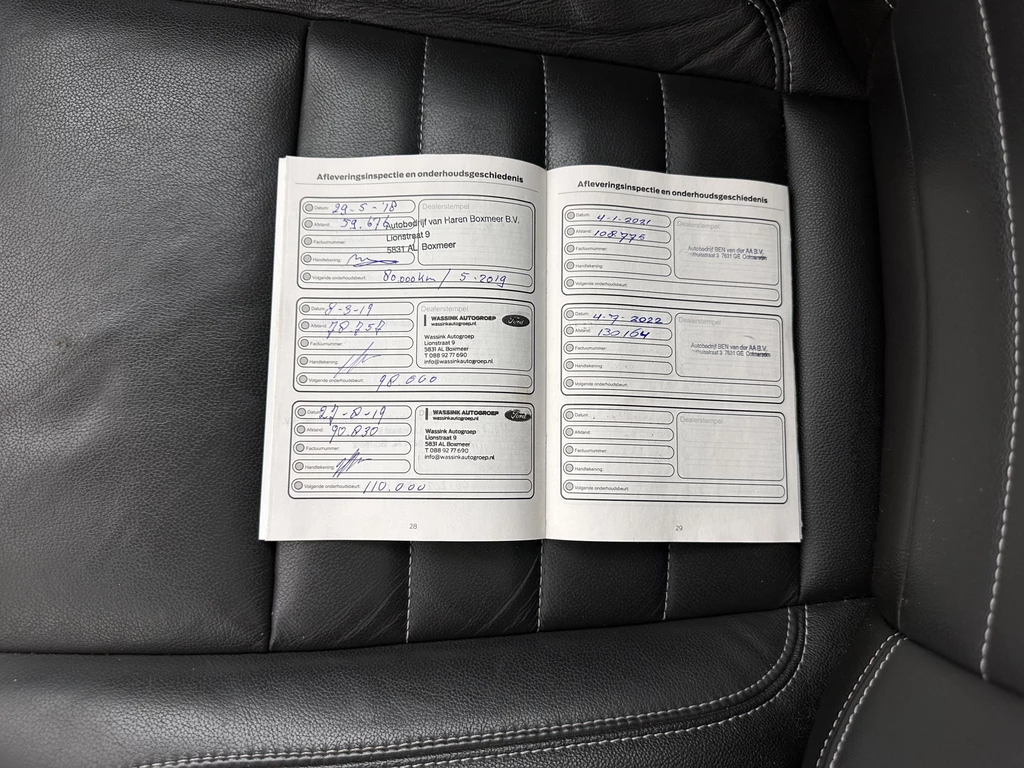 Afleveringsinspectie en onderhoudsgeschiedenis
Datum: 29-5-'18
Afstand: 59.676
Factuurnummer:
Handtekening:
Volgende onderhoudsbeurt: 80.000km / 5-2019
Dealerstempel
Autobedrijf van Haren Boxmeer B.V.
Lionstraat 9
5831 AL Boxmeer
Datum: 8-3-19
Afstand: 78757
Factuurnummer:
Handtekening:
Volgende onderhoudsbeurt: 98 000
Dealerstempel
WASSINK AUTOGROEP
wassinkautogroep.nl
Ford
Wassink Autogroep
Lionstraat 9
5831 AL Boxmeer
T 088 92 77 690
info@wassinkautogroep.nl
Datum: 27-8-19
Afstand: 90.830
Factuurnummer:
Handtekening:
Volgende onderhoudsbeurt: 110.000
WASSINK AUTOGROEP
wassinkautogroep.nl
Ford
Wassink Autogroep
Lionstraat 9
5831 AL Boxmeer
T 088 92 77 690
info@wassinkautogroep.nl
28
Afleveringsinspectie en onderhoudsgeschiedenis
Datum: 4-1-2021
Afstand: 108775
Factuurnummer:
Handtekening:
Volgende onderhoudsbeurt:
Dealerstempel
Autobedrijf BEN van der AA B.V.
3 7631 GE Ootmarsum
Datum: 4-7-2022
Afstand: 130164
Factuurnummer:
Handtekening:
Volgende onderhoudsbeurt:
Dealerstempel
Autobedrijf BEN van der AA B.V.
3 7631 GE Ootmarsum
Datum:
Afstand:
Factuurnummer:
Handtekening:
Volgende onderhoudsbeurt:
Dealerstempel
29